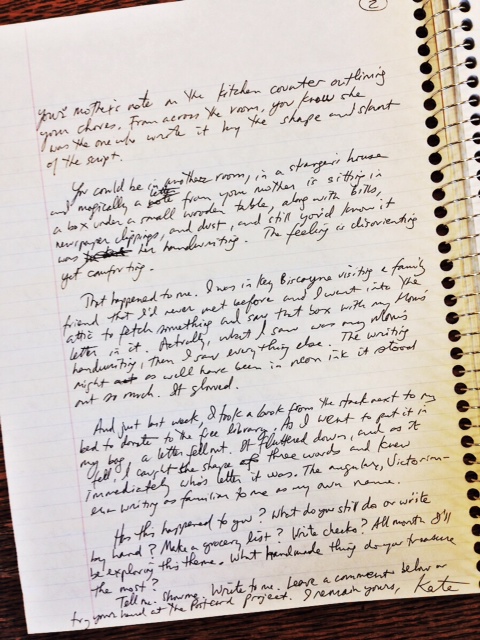 2
your mother's note on the kitchen counter outlining
your chores. From across the room, you know she
was the one who wrote it by the shape and slant
of the script.
You could be in another room, in a stranger's house
and magically a letter from your mother is sitting in
a box under a small wooden table, along with bills,
newspaper clippings, and dust, and still you'd know it
was her handwriting. The feeling is disorienting
yet comforting.
That happened to me. I was in Key Biscayne visiting a family
friend that I'd never met before and I went into the
attic to fetch something and saw that box with my Mom's
letter in it. Actually, what I saw was my Mom's
handwriting, then I saw everything else. The writing
might as well have been in neon ink it stood
out so much. It glowed.
And just last week I took a book from the stack next to my
bed to donate to the free library. As I went to put it in
my bag a letter fell out. It fluttered down, and as it
fell, I caught the shape of three words and knew
immediately who's letter it was. The angular, Victorian-
era writing as familiar to me as my own name.
Has this happened to you? What do you still do or write
by hand? Make a grocery list? Write checks? All month I'll
be exploring this theme. What handmade thing do you treasure
the most?
Tell me. Show me. Write to me. Leave a comment below or
try your hand at The Postcard Project. I remain yours, Kate